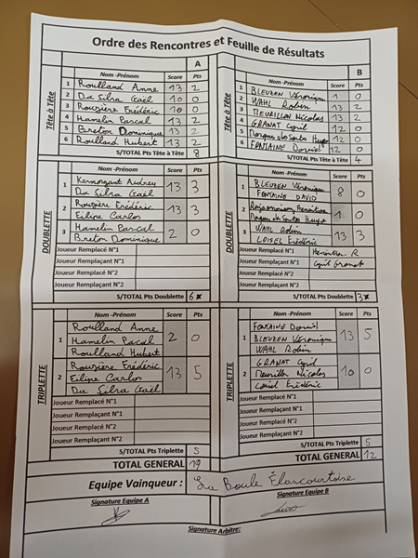 Ordre des Rencontres et Feuille de Résultats
A
Nom -Prénom Score Pts
Tête à Tête
1 Roulland Anne 13 2
2 Da Silva Gaël 10 0
3 Rouzière Frédéric 10 0
4 Hamelin Pascal 13 2
5 Breton Dominique 13 2
6 Roulland Hubert 13 2
S/TOTAL Pts Tête à Tête 8
B
Nom -Prénom Score Pts
Tête à Tête
1 BLEUZEN Véronique 1 0
2 WAHL Robin 13 2
3 Nicolas 13 2
4 GRANAT Cyril 12 0
5 12 0
6 FONTAINE 12 0
S/TOTAL Pts Tête à Tête 4
DOUBLETTE
Nom -Prénom Score Pts
1 Audrey 13 3
Da Silva Gaël
2 Rouzière Frédéric 13 3
Carlos
3 Hamelin Pascal 2 0
Breton Dominique
Joueur Remplacé N°1
Joueur Remplaçant N°1
Joueur Remplacé N°2
Joueur Remplaçant N°2
S/TOTAL Pts Doublette 6
DOUBLETTE
Nom -Prénom Score Pts
1 BLEUZEN Véronique 8 0
FONTAINE DAVID
2 1 0
3 WAHL Robin 13 3
LOISEL Frédéric
Joueur Remplacé N°1 R
Joueur Remplaçant N°1 Cyril Granat
Joueur Remplacé N°2
Joueur Remplaçant N°2
S/TOTAL Pts Doublette 3
TRIPLETTE
Nom -Prénom Score Pts
1 Roulland Anne 2 0
Hamelin Pascal
Roulland Hubert
2 Rouzière Frédéric 13 5
Carlos
Da Silva Gaël
Joueur Remplacé N°1
Joueur Remplaçant N°1
Joueur Remplacé N°2
Joueur Remplaçant N°2
S/TOTAL Pts Triplette 5
TOTAL GENERAL 19
TRIPLETTE
Nom -Prénom Score Pts
1 FONTAINE 13 5
BLEUZEN Véronique
WAHL Robin
2 GRANAT Cyril 10 0
Nicolas
Loisel Frédéric
Joueur Remplacé N°1
Joueur Remplaçant N°1
Joueur Remplacé N°2
Joueur Remplaçant N°2
S/TOTAL Pts Triplette 5
TOTAL GENERAL 12
Equipe Vainqueur : La Boule Élancourtoise
Signature Equipe A
Signature Equipe B
Signature Arbitre: